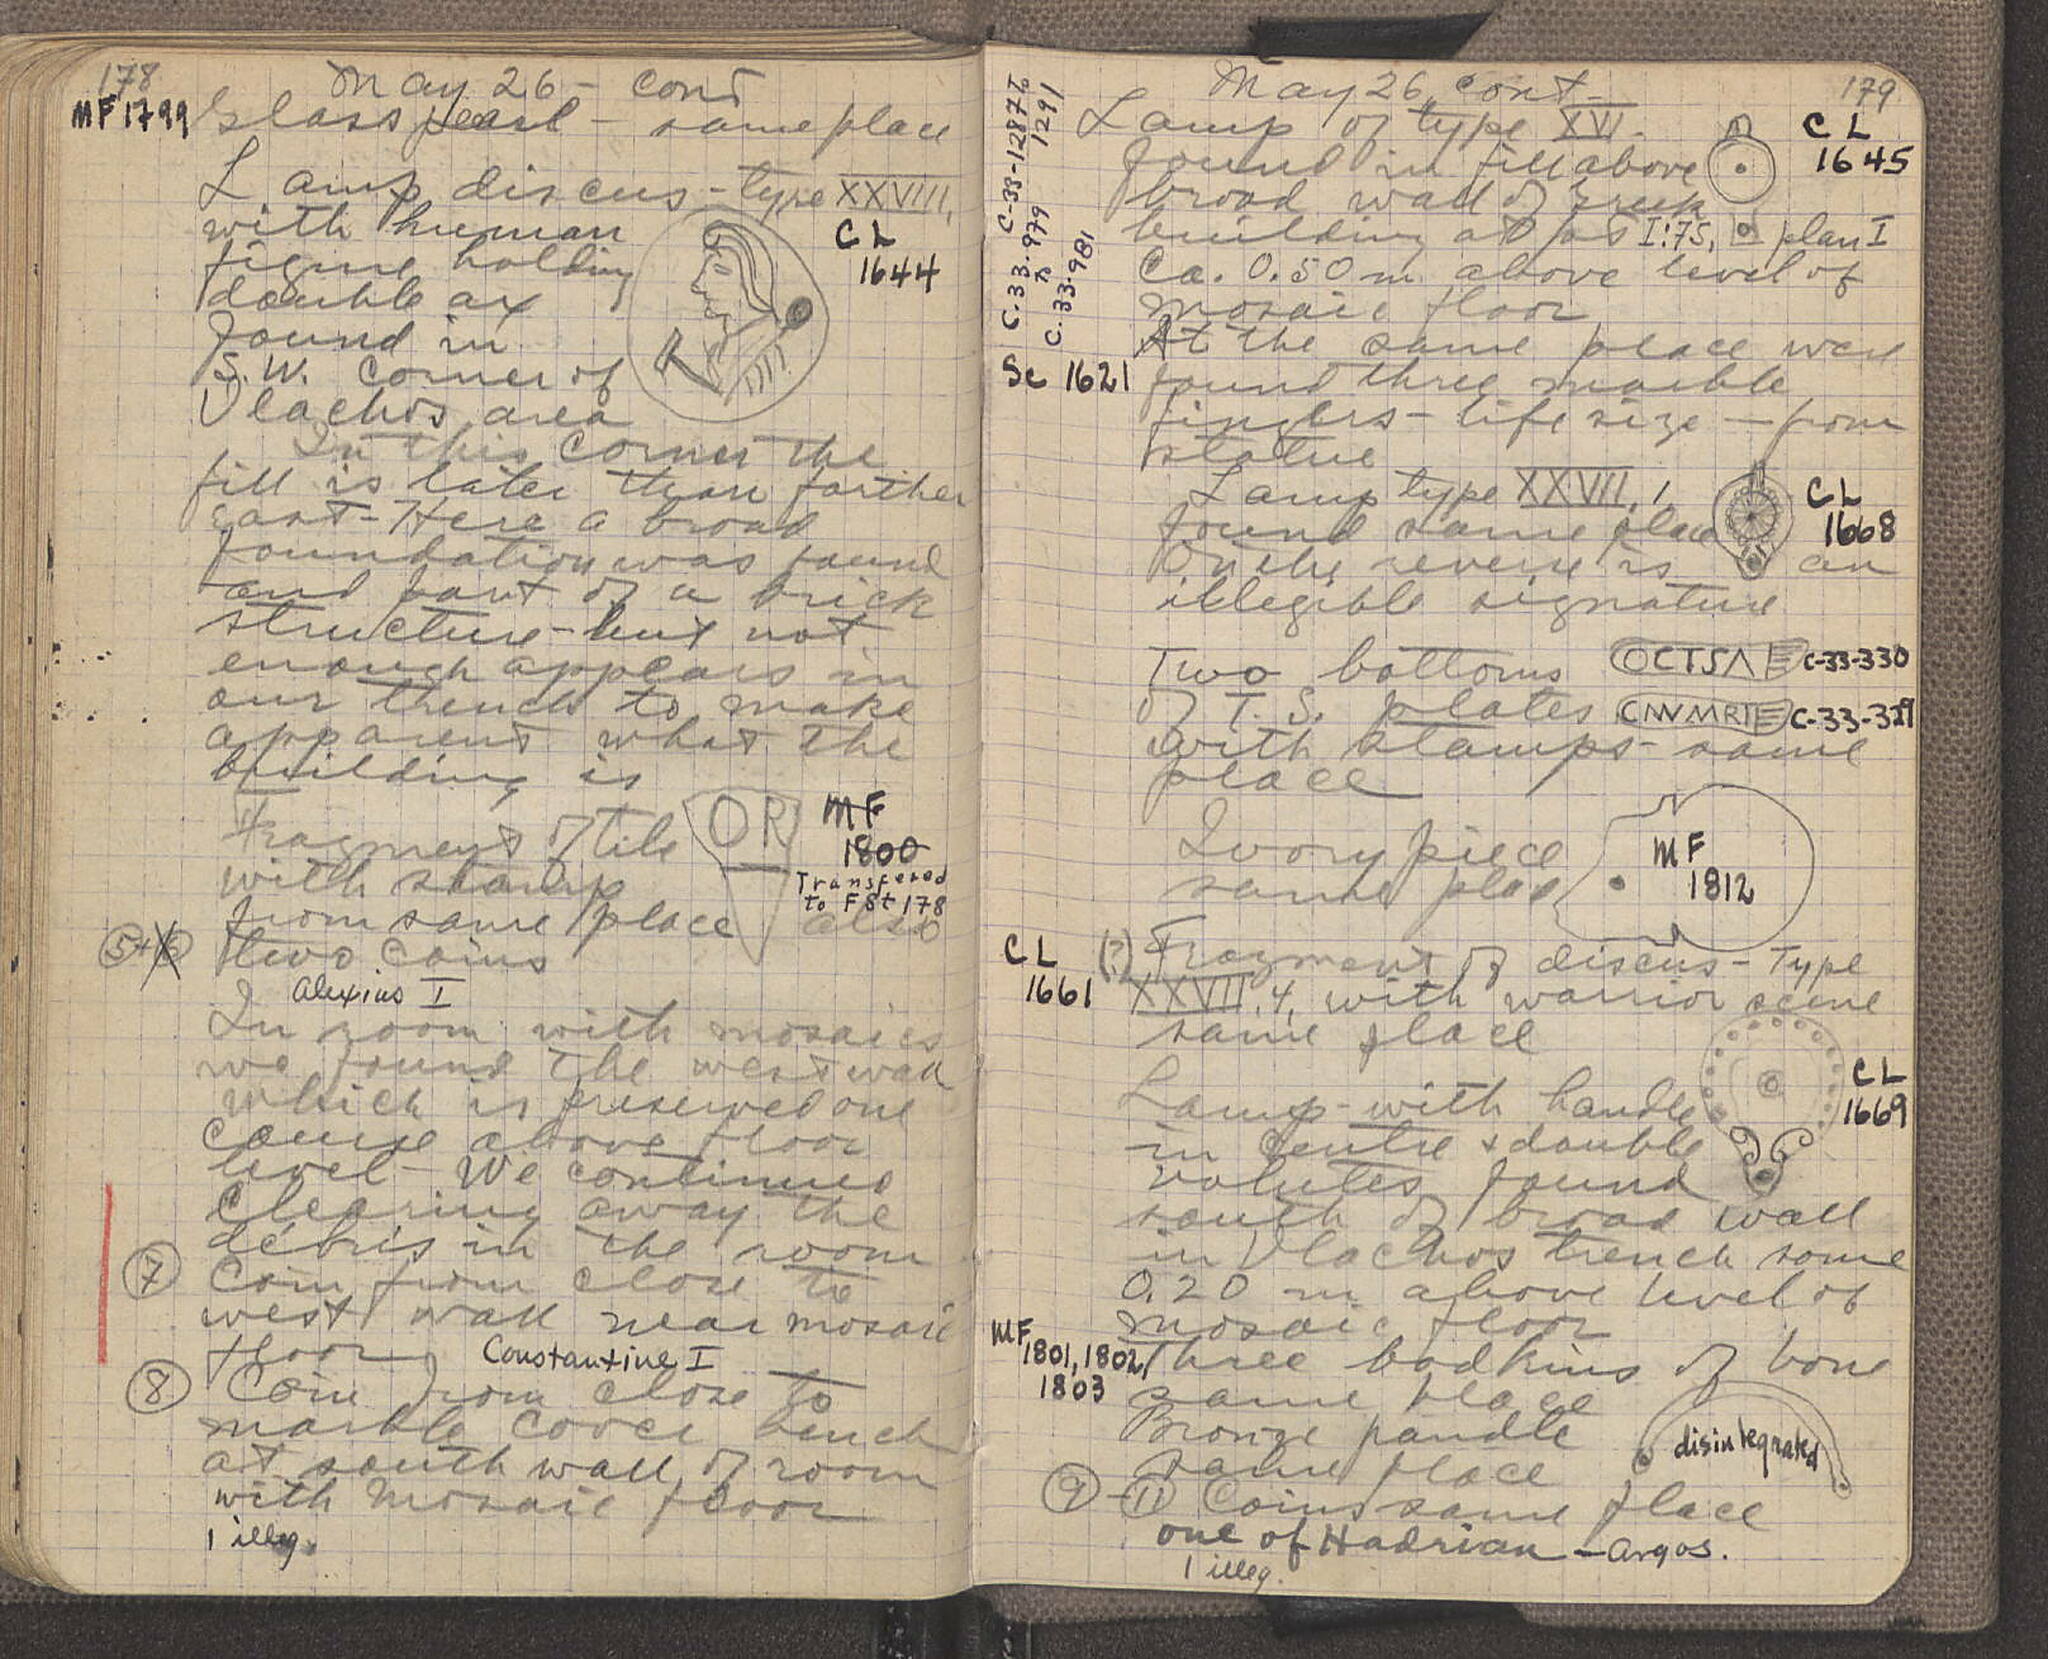 178
May 26 - cont
MF 1799 Glass pearl - same place
Lamp discus - type XXVIII,
with human
figure holding
double ax
found in
S.W. corner of
Vlachos area
CL
1644
In this corner the
fill is later than farther
east - Here a broad
foundation was found
and part of a brick
structure - but not
enough appears in
our trench to make
apparent what the
building is
Fragment of tile
with stamp
from same place also
OR
MF
1800
Transfered
to FSt 178
5+6 two coins
Alexius I
In room with mosaics
we found the west wall
which is preserved one
course above floor
level - We continued
clearing away the
débris in the room
7 Coin from close to
west wall near mosaic
floor Constantine I
8 Coin from close to
marble cover bench
at south wall of room
with mosaic floor
1 illeg.
179
May 26, cont -
Lamp of type XVI.
found in fill above
broad wall of Greek
building at pt I:75, plan I
Ca. 0.50 m above level of
mosaic floor
CL
1645
C-33-1287
1291
C-33-979
C-33-981
Sc 1621
At the same place were
found three marble
fingers - life size - from
statue
Lamp type XXVII, 1
found same place
On the reverse is an
illegible signature
CL
1668
Two bottoms
of T. S. plates
with stamps - same
place
OCTSA C-33-330
CNVMRT C-33-329
Ivory piece
same place
MF
1812
CL
1661
(?) Fragment of discus - Type
XXVII, 4, with warrior scene
same place
Lamp - with handle
in centre & double
volutes found
south of broad wall
in Vlachos trench some
0.20 m above level of
mosaic floor
CL
1669
MF
1801, 1802,
1803
Three bodkins of bone
same place
Bronze handle
same place
disintegrated
9 - 11 Coins same place
one of Hadrian - Argos.
1 illeg.